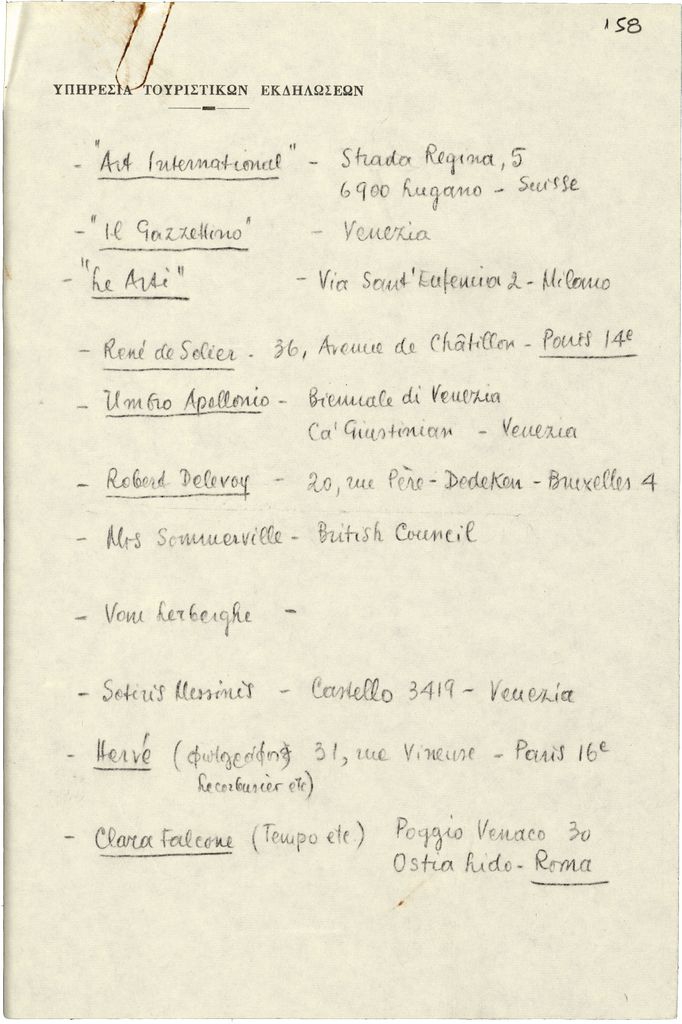 158
ΥΠΗΡΕΣΙΑ ΤΟΥΡΙΣΤΙΚΩΝ ΕΚΔΗΛΩΣΕΩΝ
- "Art International" - Strada Regina, 5
6900 Lugano - Suisse
- "Il Gazzettino" - Venezia
- "Le Arti" - Via Sant'Eufemia 2 - Milano
- René de Solier - 36, Avenue de Châtillon - Paris 14e
- Umbro Apollonio - Biennale di Venezia
Ca' Giustinian - Venezia
- Robert Delevoy - 20, rue Père - Dedeken - Bruxelles 4
- Mrs Sommerville - British Council
- Van Lerberghe -
- Sotiris Messinis - Castello 3419 - Venezia
- Hervé (φωτογράφος 31, rue Vineuse - Paris 16e
Lecorbusier etc)
- Clara Falcone (Tempo etc) Poggio Venaco 30
Ostia Lido - Roma